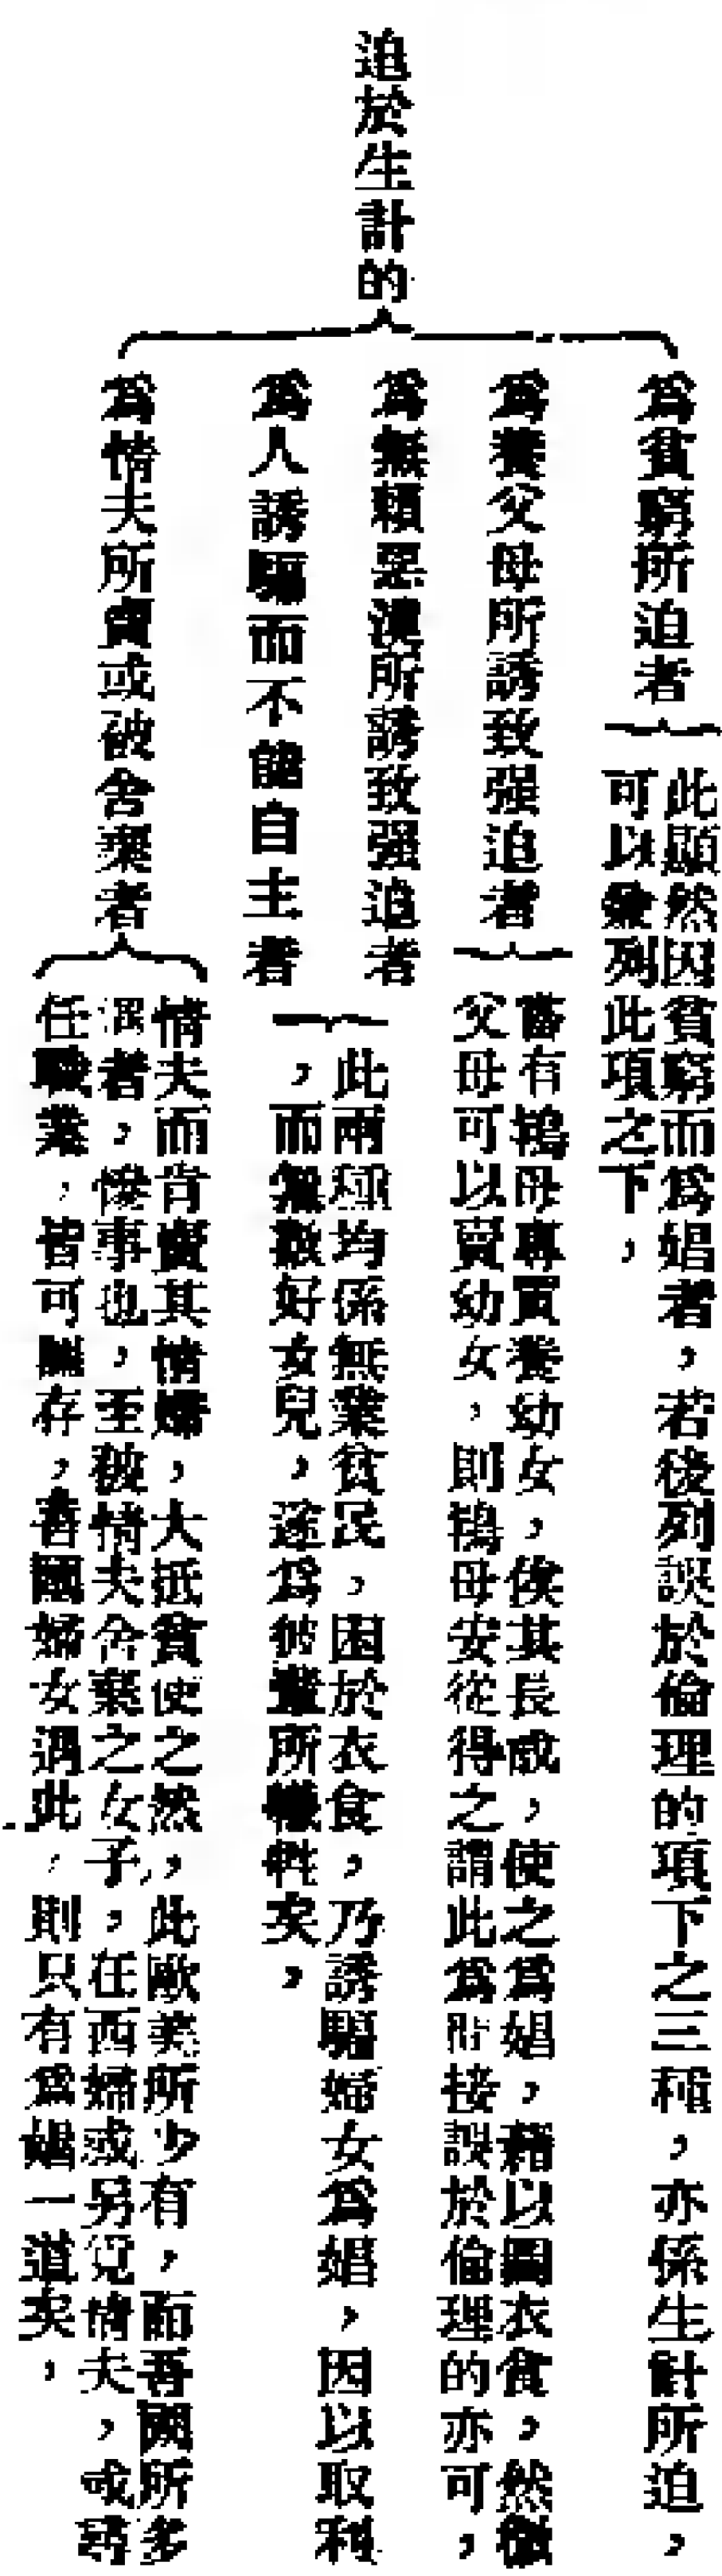 迫於生計的
爲貧窮所迫者
此顯然因貧窮而爲娼者，若後列誤於倫理的項下之三種，亦係生計所迫，
可以兼列此項之下，
爲養父母所誘致强迫者
蓄有鴇母專買養幼女，俟其長成，使之爲娼，藉以圖衣食，然微
父母可以賣幼女，則鴇母安從得之謂此爲階接誤於倫理的亦可，
爲無賴惡漢所誘致强迫者
爲人誘騙而不能自主者
此兩種均係無業貧民，困於衣食，乃誘騙婦女爲娼，因以取利
，而無數好女兒，遂爲彼輩所犧牲矣，
爲情夫所賣或被舍棄者
情夫而肯賣其情婦，大抵貧使之然，此歐美所少有，而吾國所多
淠者，慘事也，至被情夫舍棄之女子，在西婦或另覓情夫，或尋
任職業，皆可圖存，吾國婦女遇此，則只有爲娼一道矣，